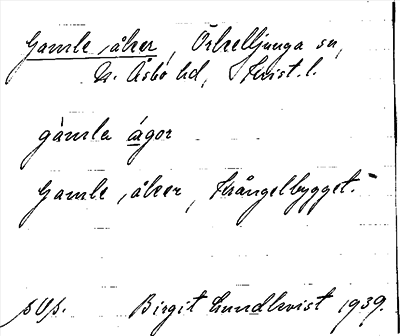 Gamle åker, Örkelljunga sn,
N. Åsbo hd, Krist. l.
gàmla ágor
Gamle åker, Skångelbygget.
Birgit Lundkvist 1939.